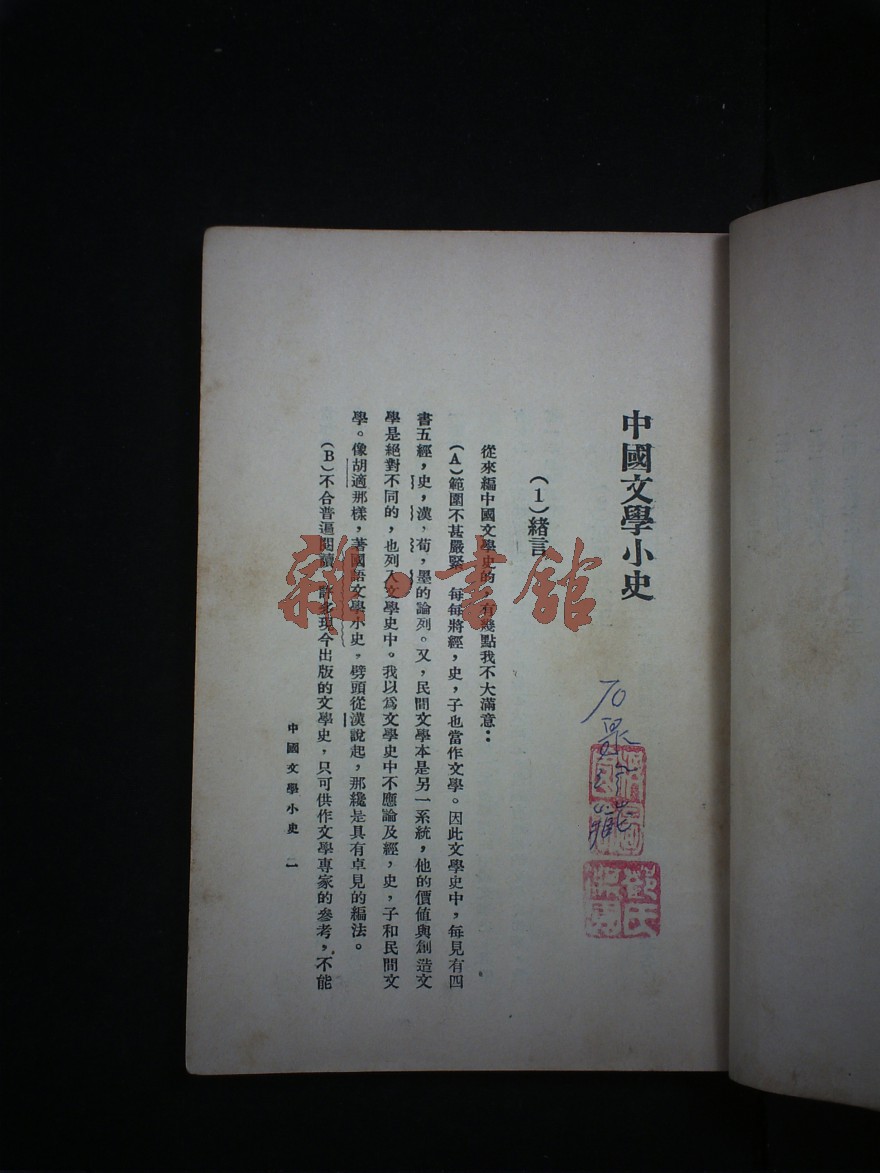 中國文學小史
(1)緒言
從來編中國文學史的，有幾點我不大滿意：
(A)範圍不甚嚴緊 每每將經，史，子也當作文學。因此文學史中，每見有四
書五經，史，漢，荀，墨的論列。又，民間文學本是另一系統，他的價值與創造文
學是絕對不同的，也列入文學史中。我以爲文學史中不應論及經，史，子和民間文
學。像胡適那樣，著國語文學小史，劈頭從漢說起，那纔是具有卓見的編法。
(B)不合普遍閱讀 許多現今出版的文學史，只可供作文學專家的參考，不能
中國文學小史 一
石泉
藏
鄧氏
雜·書館